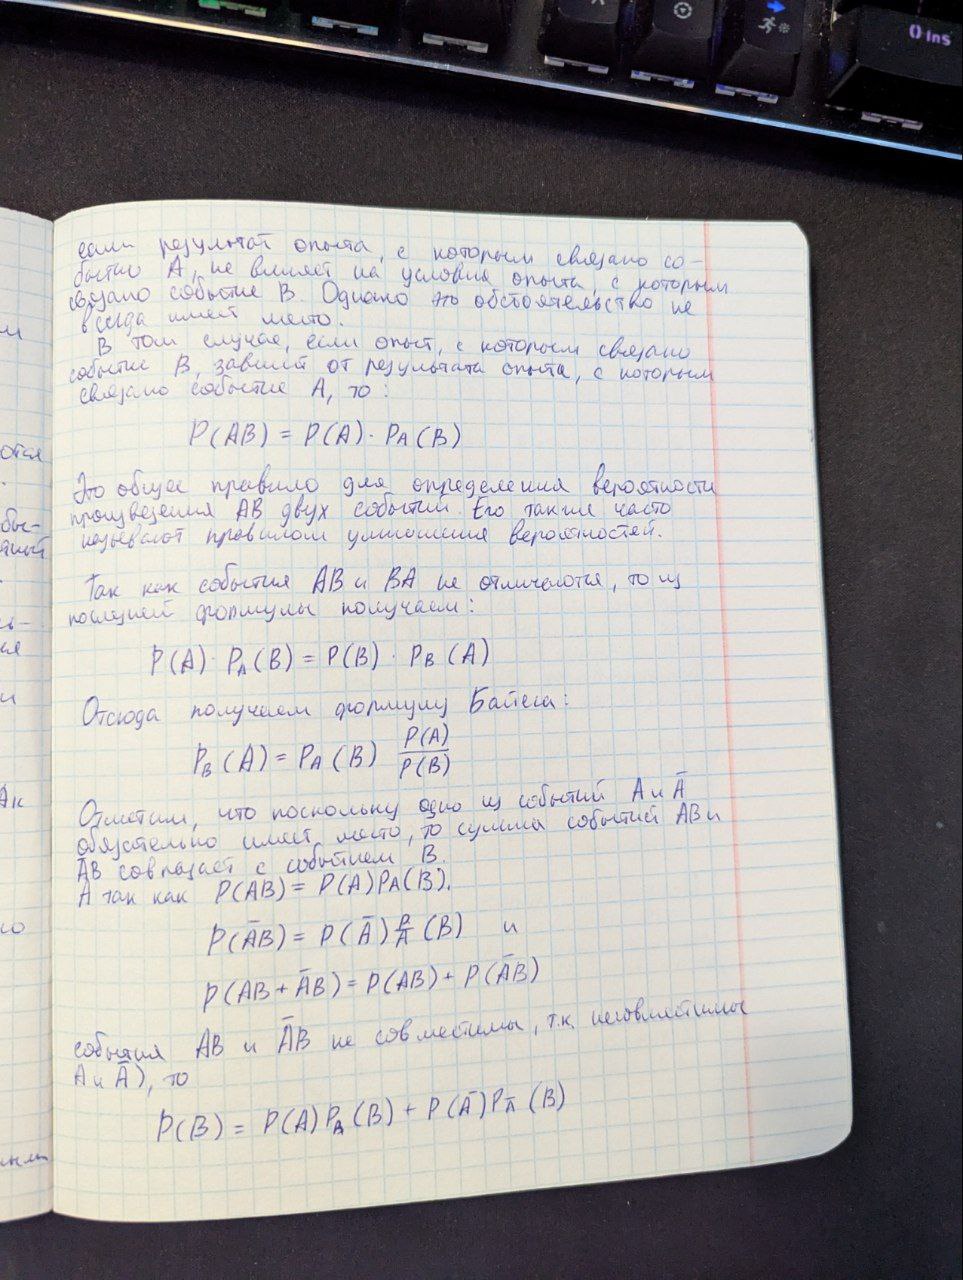 0 Ins
если результат опыта, с которым связано со-
бытие А, не влияет на условия опыта, с которым
связано событие В. Однако это обстоятельство не
всегда имеет место.
В том случае, если опыт, с которым связано
событие В, зависит от результата опыта, с которым
связано событие А, то:
P(AB) = P(A) · PA(B)
Это общее правило для определения вероятности
произведения АВ двух событий. Его также часто
называют правилом умножения вероятностей.
Так как события АВ и ВА не отличаются, то из
последней формулы получаем:
P(A) · PA(B) = P(B) · PB(A)
Отсюда получаем формулу Байеса:
PB(A) = PA(B) P(A)/P(B)
Отметим, что поскольку одно из событий А и Ā
обязательно имеет место, то сумма событий АВ и
ĀВ совпадает с событием В.
А так как P(AB) = P(A)PA(B).
P(ĀB) = P(Ā)PĀ(B) и
P(AB + ĀB) = P(AB) + P(ĀB)
события АВ и ĀВ не совместимы, т.к. несовместимы
А и Ā), то
P(B) = P(A)PA(B) + P(Ā)PĀ(B)